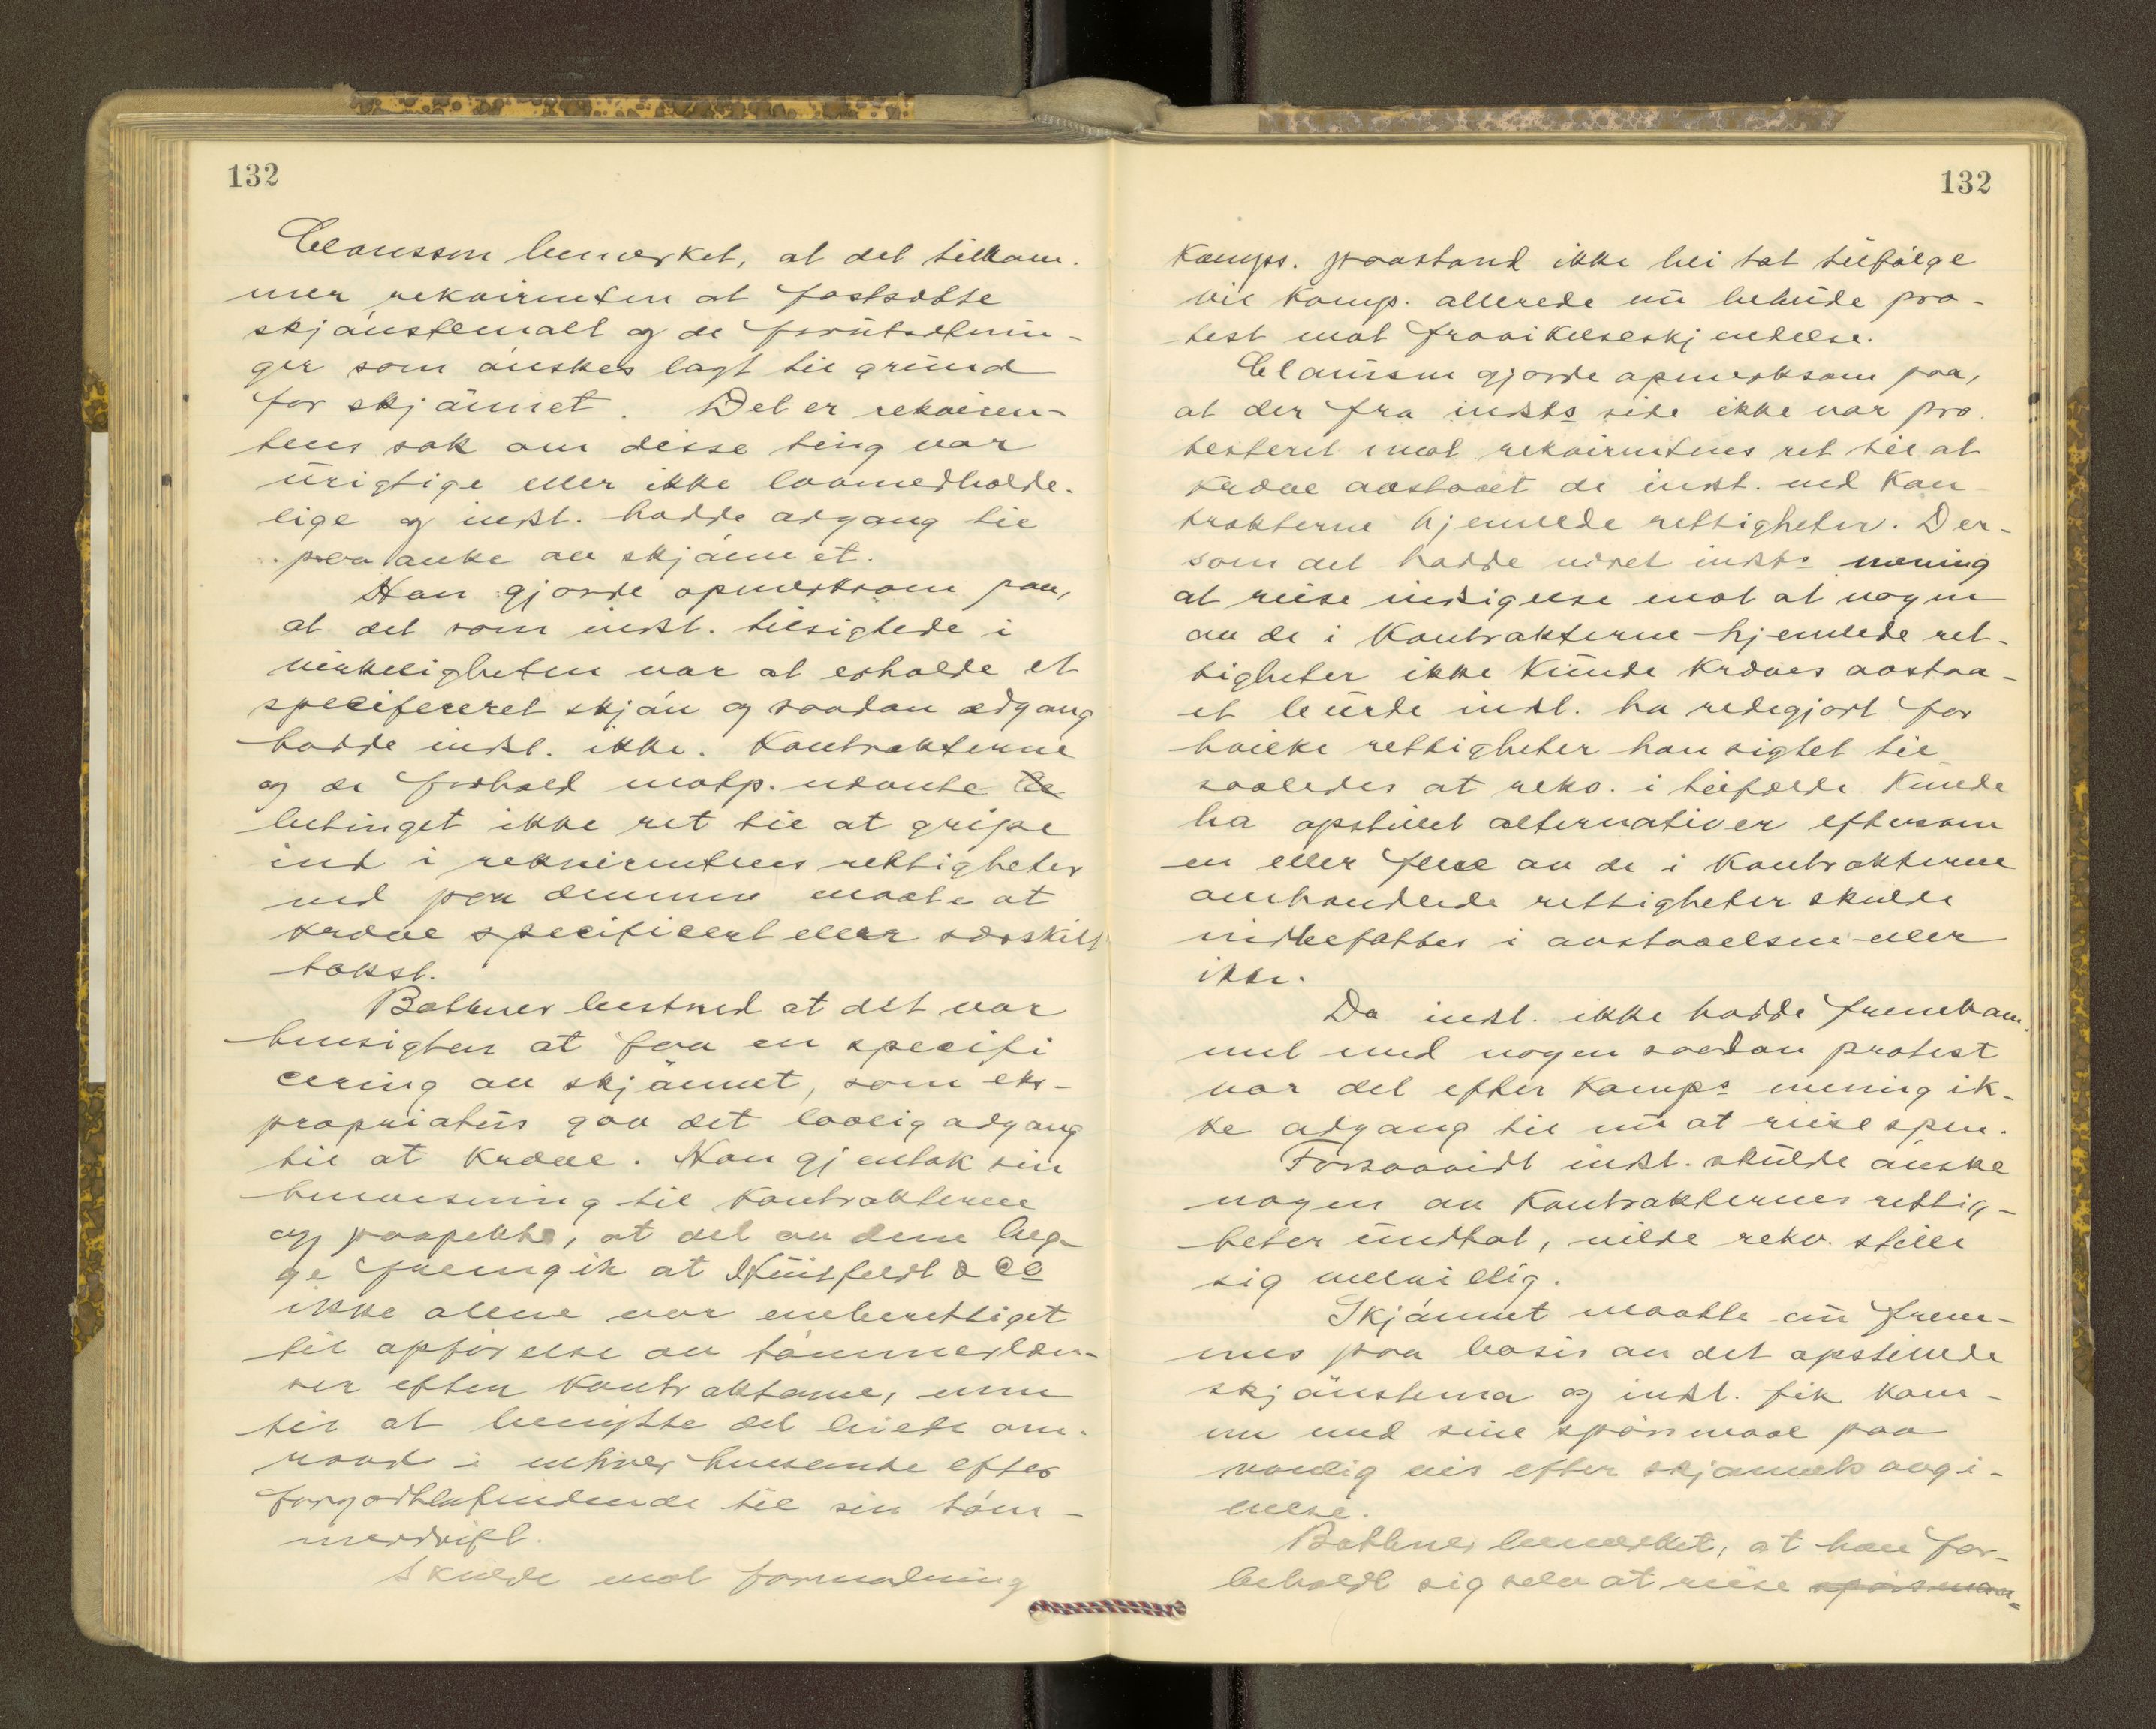 132
Claussøn bemerket, at det tilkom-
mer rekvirenten at fastsætte
skjønstemaet og de forutsætnin-
ger som ønskes lagt til grund
for skjønnet. Det er rekviren-
tens sak om disse ting var
urigtige eller ikke lovmedholde-
lige og indst. hadde adgang til
paaanke av skjønnet.
Han gjorde opmerksom paa,
at det som indst. tilsigtede i
virkeligheten var at erholde et
specificeret skjøn og saadan adgang
hadde indst. ikke. Kontrakterne
og de forhold motp. nævnte
betinget ikke ret til at gripe
ind i rekvirentens rettigheter
ved paa denne maate at
kræve specificert eller særskilt
takst.
Bothner bestred at det var
hensigten at faa en specifi
cering av skjønnet, som eks-
propriatus gav det lovlig adgang
til at kræve. Han gjentok sin
henvisning til kontrakterne
og paapekte, at det av dem beg-
ge fremgik at Huitfeldt & Co
ikke alene var eneberettiget
til opførelse av tømmerlæn-
ser efter kontrakterne, men
til at benytte det leiede om-
raade i enhver henseende efter
forgodtbefindende til sin tøm-
merdrift.
Skulde mot formodning
132
Kamps. paastand ikke bli tat tilfølge
vil Kamp. allerede nu bebude pro-
test mot fravikelseskjendelse.
Claussøn gjorde opmerksom paa,
at der fra indsts side ikke var pro
testeret mot rekvirentens ret til at
kræve avstaaet de indst. ved kon-
trakterne hjemlede rettigheter. Der-
som det hadde været indsts mening
at reise indsigelse mot at nogen
av de i kontrakterne hjemlede ret-
tigheter ikke kunde kræves avstaa-
et burde indst. ha redegjort for
hvilke rettigheter han sigtet til
saaledes at rekv. i tilfælde kunde
ha opstillet alternativer eftersom
en eller flere av de i kontrakterne
omhandlede rettigheter skulde
indbefattes i avstaaelsen eller
ikke.
Da indst. ikke hadde fremkom-
met med nogen saadan protest
var det efter Kamps mening ik-
ke adgang til nu at reise spm.
Forsaavidt indst. skulde ønske
nogen av kontrakternes rettig-
heter undtat, vilde rekv. stille
sig velvillig.
Skjønnet maatte nu frem-
mes paa basis av det opstillede
skjønstema og indst. fik kom-
me med sine spørsmaal paa
vanlig vis efter skjønnets avgi-
velse.
Bothner bemerket, at han for-
beholdt sig selv at reise spørsmaa-